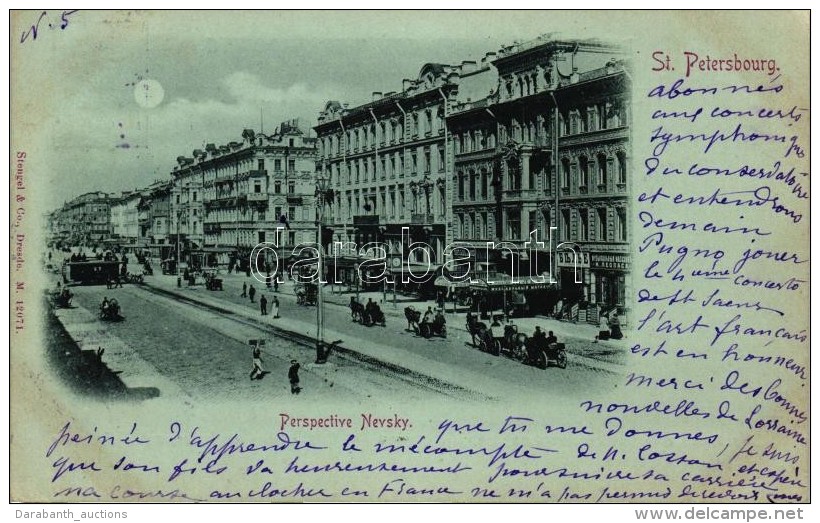 N. 5
St. Petersbourg.
abonnés
aux concerts
symphoniques
du conservatoire
et entendrons
demain
Pugno jouer
le 4ème concerto
de St Saens
l'art français
est en honneur
merci des bonnes
nouvelles de Lorraine
Stengel & Co., Dresde. M. 12071.
darabanth
Perspective Nevsky.
que tu me donnes, je suis
peinée d'apprendre le mécompte de M. Cosson et espère
que son fils va heureusement poursuivre sa carrière
ma course au clocher en France ne m'a pas permis de
Darabanth_auctions
http://www.delcampe.net